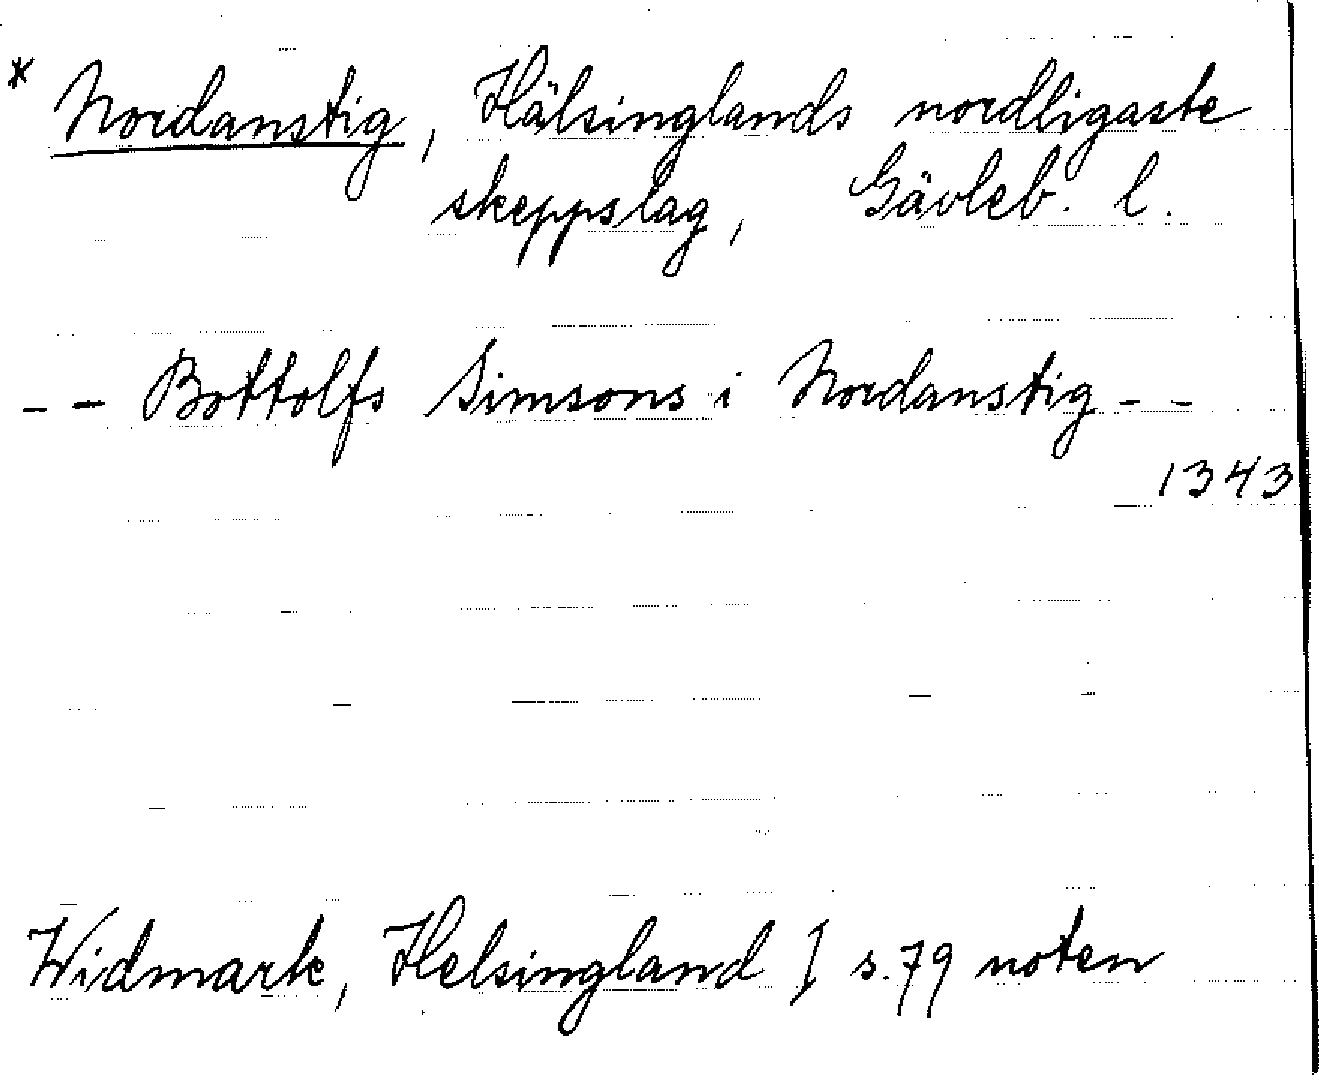 * Nordanstig, Hälsinglands nordligaste
skeppslag, Gävleb. l.
-- Bottolfs Simsons i Nordanstig --
1343
Widmark, Helsingland I s. 79 noten